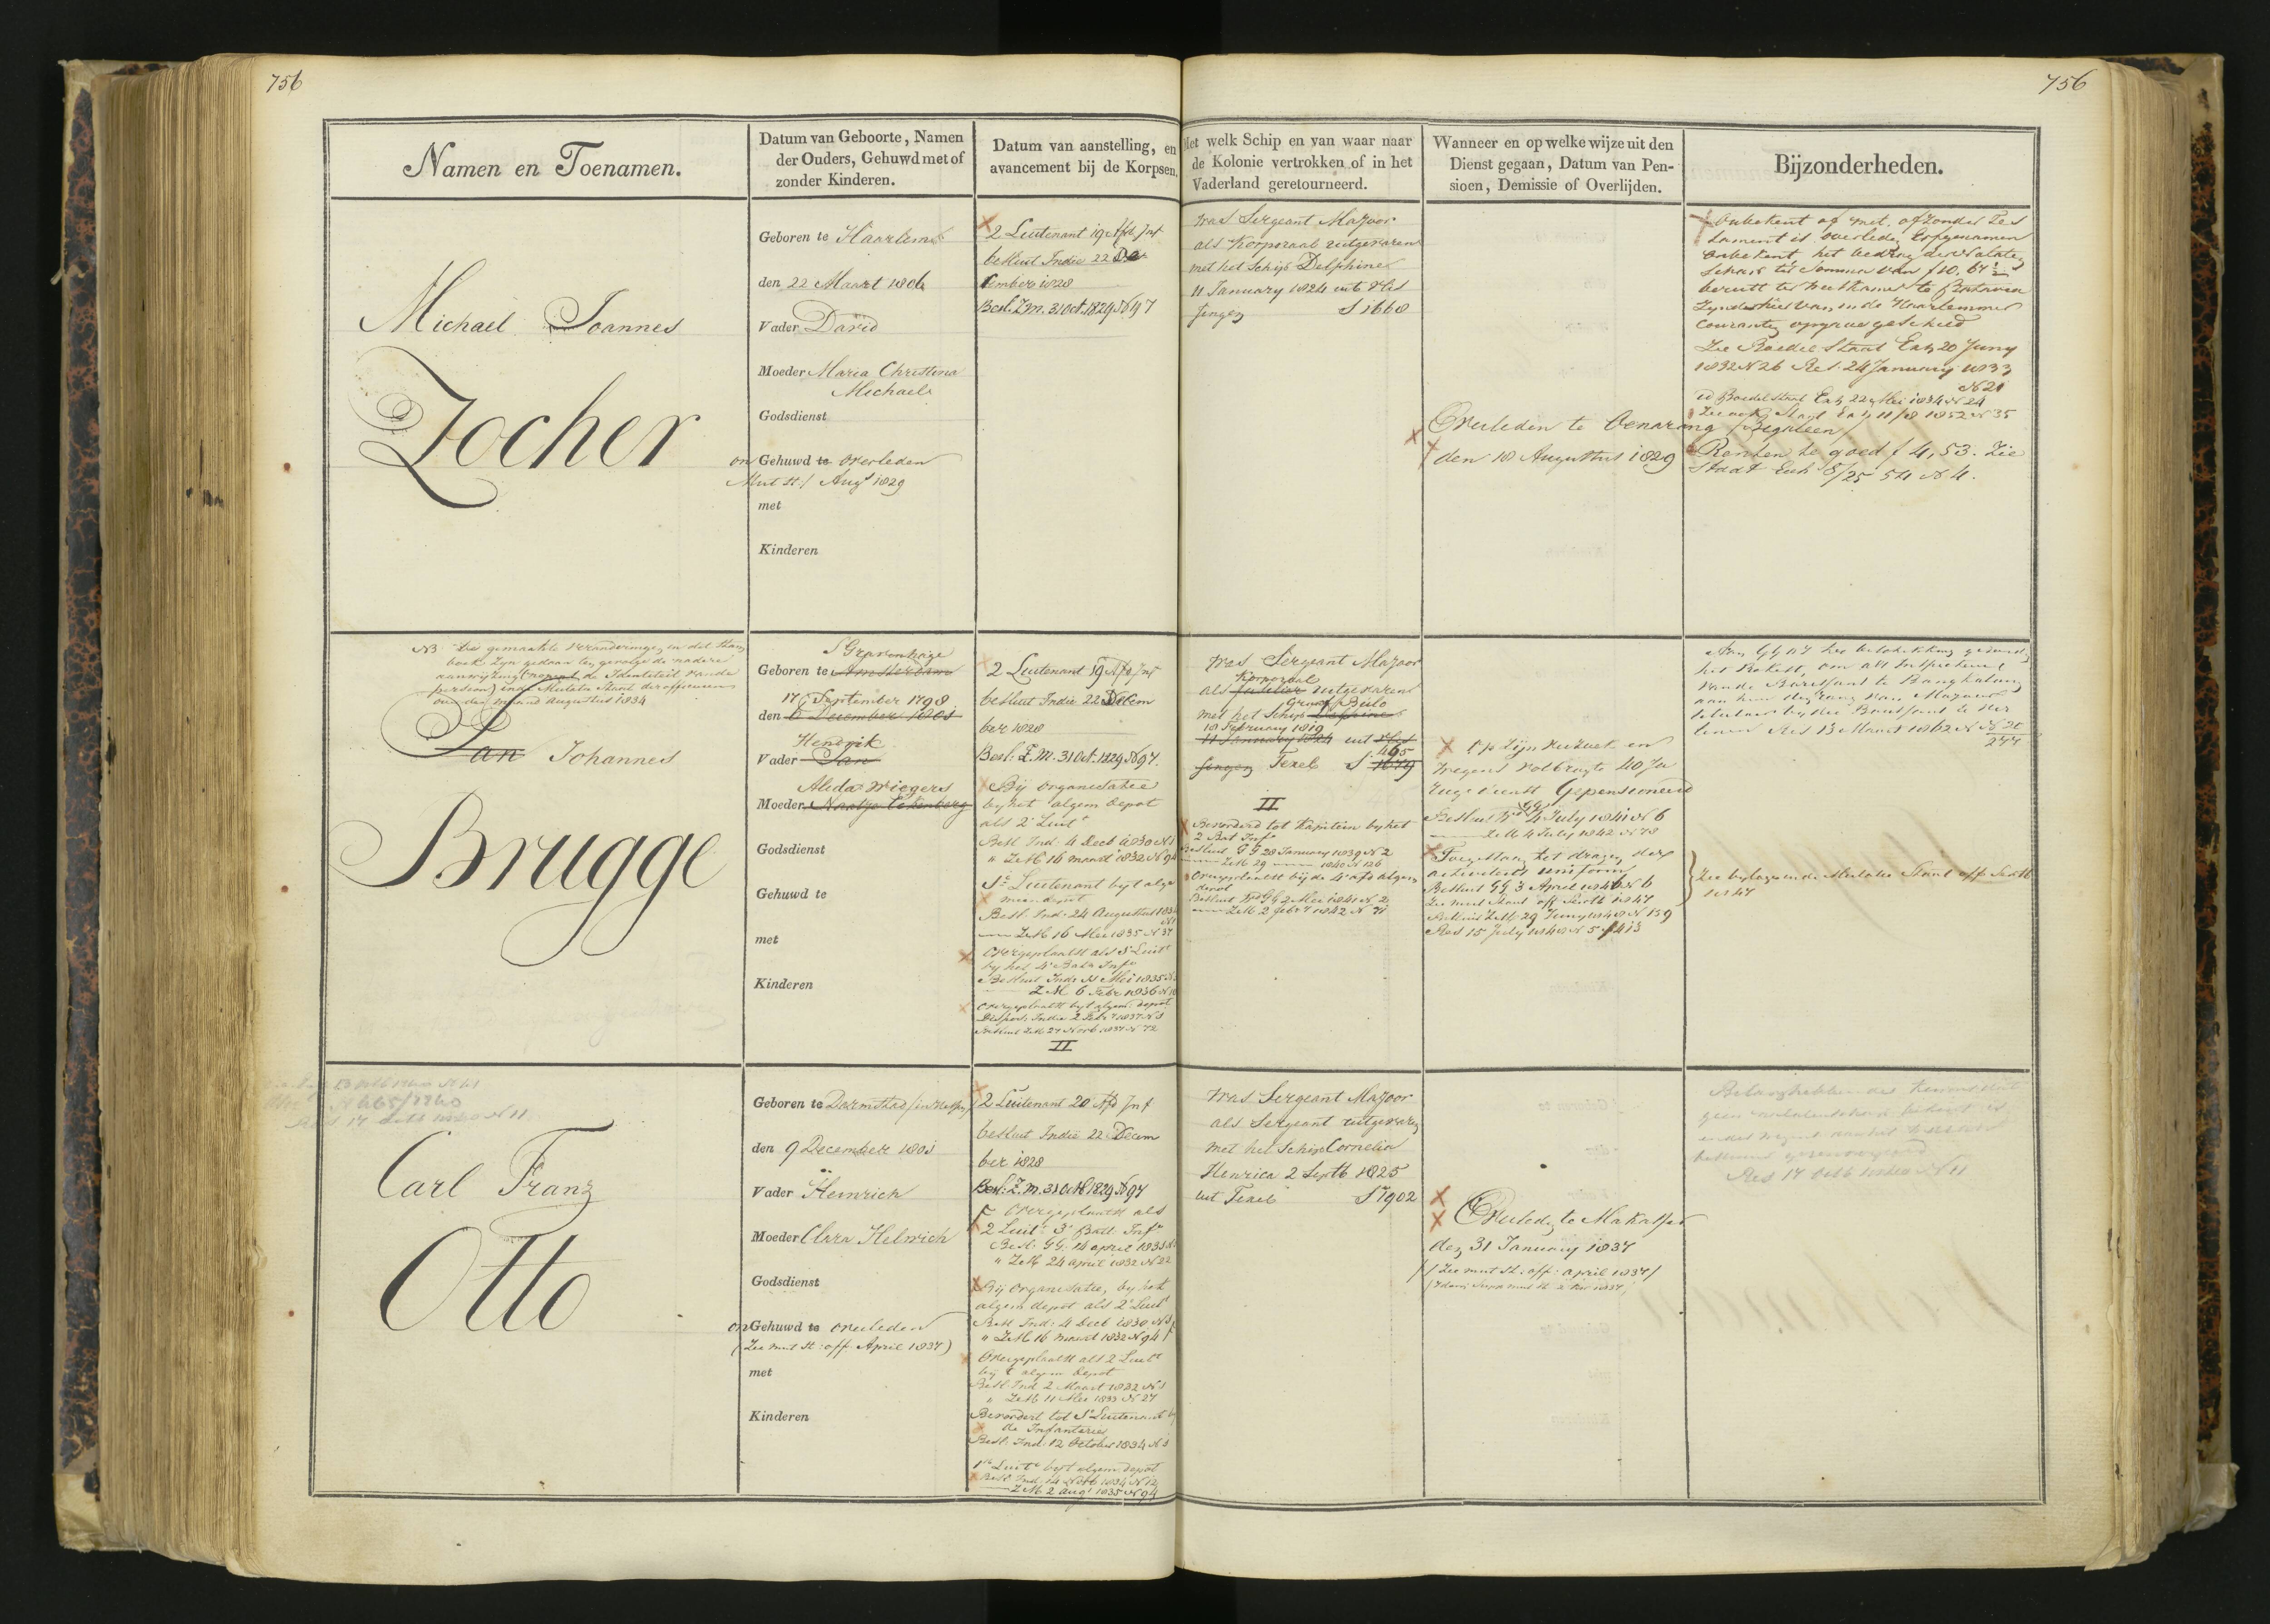 756
756
Namen en Toenamen.
Datum van Geboorte, Namen
der Ouders, Gehuwd met of
zonder Kinderen.
Datum van aanstelling, en
avancement bij de Korpsen.
Met welk Schip en van waar naar
de Kolonie vertrokken of in het
Vaderland geretourneerd.
Wanneer en op welke wijze uit den
Dienst gegaan, Datum van Pen-
sioen, Demissie of Overlijden.
Bijzonderheden.
Michael Joannes
Zocher
Geboren te Haarlem
den 22 Maart 1806
Vader David
Moeder Maria Christina
Michaels
Godsdienst
on Gehuwd te overleden
Mut St / Augt 1829
met
Kinderen
2 Luitenant 19 Afd Inf
besluit Indie 22 De
cember 1828
Besl. Z.M. 31 Oct. 1829 N 97
was Sergeant Majoor
als Korporaal uitgevaren
met het Schip Delphine
11 January 1824 uit Vlis
singen S 1668
Overleden te Oenarang / Begaleen /
den 18 Augustus 1829
Onbekent of met of zonder Tes
tament is overleden Erfgenamen
onbekent, het bedrag der Nalaten
schap ter Somma van f 10.67½
berust ter Weeskamer te Batavia
zynde hier van in de Haarlemmer
Couranten opgave geschied
Zie Boedel Staat Exh 20 Juny
1832 N 26 Res. 24 January 1833
N 21
id Boedel Staat Exh 22 Mei 1834 N 24
Zie ook Staat Exh 11/8 1852 N 35
Renten te goed f 4,53. Zie
Staat Exh 8/25 54 N 4.
NB De gemaakte veranderingen in dit Stam
boek zyn gedaan ten gevolge de nadere
aanwijzing de Identiteit van de
persoon in de Mutatie Staat der officieren
over de maand Augustus 1834
Jan Johannes
Brugge
S Gravenhage
Geboren te Amsterdam
17 September 1798
den 6 December 1801
Hendrik
Vader Jan
Alida Wiegers
Moeder
Godsdienst
Gehuwd te
met
Kinderen
2 Luitenant 19 Afd Inf
besluit Indie 22 Decem
ber 1828
Besl: Z.M. 31 Oct. 1829 N 97.
Bij organisatie
by het algem depot
als 2e Luitt
Besl Ind: 4 Decb 1830 N 1
" ZM 16 maart 1832 N 94
1e Luitenant by't alge
meen depot
Besl. Ind. 24 Augustus 1834
N 1
ZM 16 Mei 1835 N 37
Overgeplaatst als 1e Luitt
by het 4e Batn Infe
Besluit Indie Mei 1835 N
ZM 6 Febr 1836 N
Overgeplaatst by't algem. depot
Indie 2 Febr 1837 N 1
Besluit ZM 27 Novb 1837 N 72
II
was Sergeant Majoor
Korporaal
als fuselier uitgevaren
Graaf Bulo
met het Schip Delphine
18 February 1819
11 January 1824 uit Vlis
465
singen Texel S 1679
II
Bevorderd tot Kapitein by het
2 Bat Infe
Besluit GG 28 January 1839 N 2
ZM 29 1840 N 126
Overgeplaatst bij de 4e afd algem
depot
Besluit GG 2 Mei 1841 N 2
ZM 2 Febr 1842 N 71
Op zijn verzoek en
wegens volbragte 40 Ja
rige dienst Gepensioneerd
Besluit GG 4 July 1841 N 6
ZM 4 July 1842 N 78
Toegestaan het dragen der
activiteits uniform
Besluit GG 3 April 1846 N 6
Zie mut Staat off Septb 1847
Besluit ZM 29 Juny 1848 N 159
Res 15 July 1848 N 5 f 413
Zie bylagen in de Mutatie Staat off Septb
1847
Res 13 Maart 1862 N 20
277
N 465/1340
Res 17 Octb 1840 N 11
Carl Franz
Otto
Geboren te Darmstad / in Hessen /
den 9 December 1801
Vader Heinrich
Moeder Clara Helwich
Godsdienst
on Gehuwd te overleden
(Zie mut St: off. April 1837)
met
Kinderen
2 Luitenant 20 Afd Inf
besluit Indië 22 Decem
ber 1828
Besl: Z.M. 31 Octb 1829 N 97
Overgeplaatst als
2 Luitt 3e Batt. Infe
Besl. GG. 14 april 1831 N
" ZM 24 april 1832 N 22
Bij Organisatie, by het
algem depot als 2e Luitt
Besl. Ind: 4 Decb 1830 N 1
" ZM 16 maart 1832 N 94
Overgeplaatst als 2 Luitt
bij 't algem depot
Besl. Ind 2 Maart 1832 N 1
" ZM 11 Mei 1833 N 27
Bevorderd tot 1e Luitenant by
de Infanterie
Besl. Ind. 12 October 1834 N 1
1e Luitt by't algem depot
Besl. Ind. 14 Novb 1834 N 12
ZM 2 Augt 1835 N 94
was Sergeant Majoor
als Sergeant uitgevaren
met het Schip Cornelia
Henrica 2 Septb 1825
uit Texel S 7902
Overleden te Makasser
den 31 January 1837
/ Zie mut St. off. april 1837 /
Res 17 Octb 1840 N 11